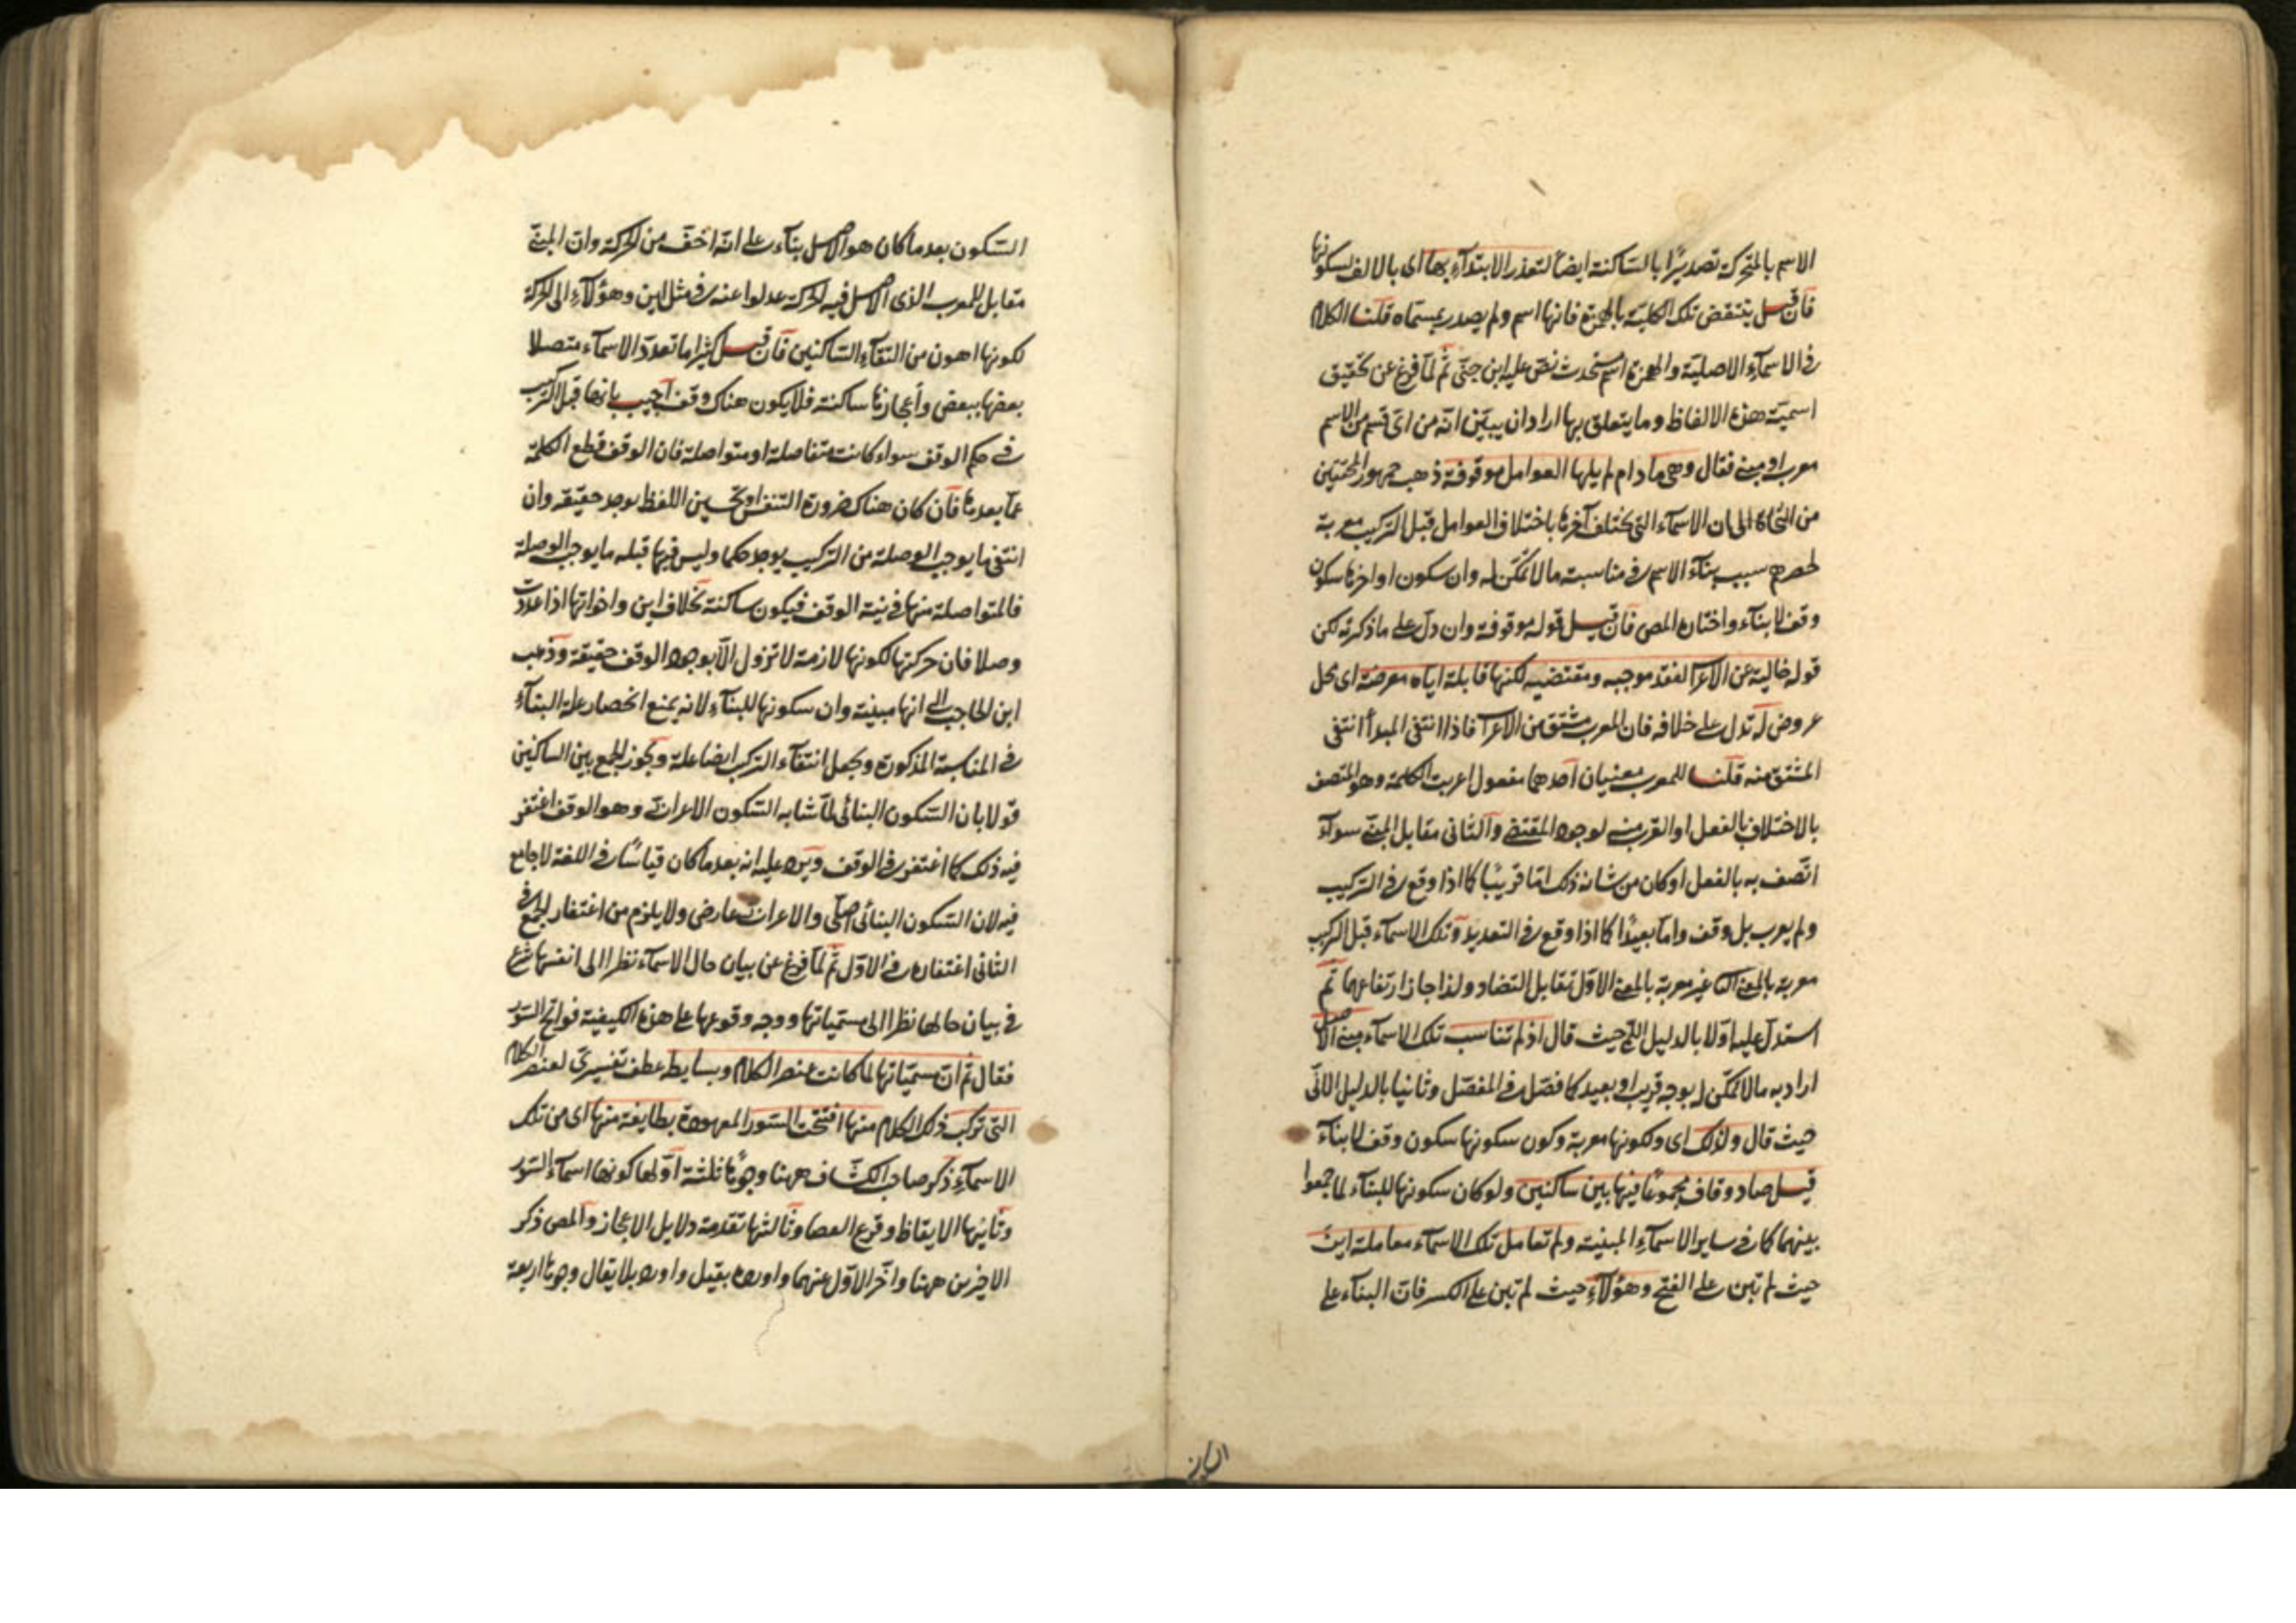 الاسم بالمتحركة تصديرًا بالساكنة ايضا لتعذر الابتدآء بها اى بالالف لسكونها
فان قيل ينتقض تلك الكلية بالهمزة فانها اسم ولم يصدر بمسماه قلنا الكلام
فى الاسمآء الاصلية والهمزة اسم مستحدث نص عليه ابن جنى ثم لما فرغ عن تحقيق
اسمية هذه الالفاظ وما يتعلق بها اراد ان يبين انه من اى قسم من الاسم
معرب او مبنى فقال وهى ما دام لم يليها العوامل موقوفة ذهب جمهور المحققين
من النحاة الى ان الاسمآء التى يختلف آخرها باختلاف العوامل قبل التركيب معربة
لحصرهم سبب بنآء الاسم فى مناسبته ما لا تمكن له وان سكون اواخرها سكون
وقف لا بنآء واختاره المص فان قيل قوله موقوفة وان دل على ما ذكرته لكن
قوله خالية عن الاعراب لفقد موجبه ومقتضيه لكنها قابلة اياه معرضة اى محل
عروض له تدل على خلافه فان المعرب مشتق من الاعراب فاذا انتفى المبدأ انتفى
المشتق منه قلنا للمعرب معنيان احدهما مفعول اعربت الكلمة وهو المتصف
بالاختلاف بالفعل او القريب منه لوجود المقتضى والثانى مقابل المبنى سوآء
اتصف به بالفعل او كان من شانه ذلك اما قريبًا كما اذا وقع فى التركيب
ولم يعرب بل وقف واما بعيدًا كما اذا وقع فى التعديد وتلك الاسمآء قبل التركيب
معربة بالمعنى الثانى غير معربة بالمعنى الاول تقابل التضاد ولذا جاز ارتفاعهما ثم
استدل عليه اولا بالدليل اللمى حيث قال اذ لم تناسب تلك الاسمآء مبنى الاصل
اراد به ما لا تمكن له بوجه قريب او بعيد كما فصل فى المفصل وثانيا بالدليل الانى
حيث قال ولذلك اى ولكونها معربة وكون سكونها سكون وقف لا بنآء
قيل صاد وقاف مجموعًا فيها بين ساكنين ولو كان سكونها للبنآء لما جمعوا
بينهما كما فى ساير الاسمآء المبنية ولم تعامل تلك الاسمآء معاملة اين
حيث لم تبن على الفتح وهؤلآء حيث لم تبن على الكسر فان البنآء على
السكون بعد ما كان هو الاصل بنآء على انه اخف من الحركة وان المبنى
مقابل للمعرب الذى الاصل فيه الحركة عدلوا عنه فى مثل اين وهؤلآء الى الحركة
لكونها اهون من التقآء الساكنين فان قيل كثيرا ما تعدد الاسمآء متصلا
بعضها ببعض وأعجازها ساكنة فلا يكون هناك وقف اجيب بانها قبل التركيب
فى حكم الوقف سواء كانت متفاصلة او متواصلة فان الوقف قطع الكلمة
عما بعدها فان كان هناك ضرورة التنفس او تحسين اللفظ يوجد حقيقة وان
انتفى ما يوجب الوصلة من التركيب يوجد حكما وليس فيها قبله ما يوجب الوصلة
فالمتواصلة منها فى نية الوقف فيكون ساكنة بخلاف اين واخواتها اذا عددت
وصلا فان حركتها لكونها لازمة لا تزول الا بوجود الوقف حقيقة وذهب
ابن الحاجب الى انها مبنية وان سكونها للبنآء لانه يمنع انحصار علة البنآء
فى المناسبة المذكورة ويجعل انتفآء التركيب ايضا علة ويجوز الجمع بين الساكنين
قولا بان السكون البنائى لما شابه السكون الاعرابى وهو الوقف اغتفر
فيه ذلك كما اغتفر فى الوقف ويرد عليه انه بعد ما كان قياسًا فى اللغة لا جامع
فيه لان السكون البنائى اصلى والاعرابى عارضى ولا يلزم من اغتفار الجمع فى
الثانى اغتفاره فى الاول ثم لما فرغ عن بيان حال الاسمآء نظرا الى انفسها شرع
فى بيان حالها نظرا الى مسمياتها ووجه وقوعها على هذه الكيفية فواتح السور
فقال ثم ان مسمياتها لما كانت عنصر الكلام وبسايطه عطف تفسيرى لعنصر الكلام
التى تركب ذلك الكلام منها افتتحت السور المعهودة بطايفة منها اى من تلك
الاسمآء ذكر صاحب الكشاف ههنا وجوهًا ثلثة اولها كونها اسمآء السور
وثانيها الايقاظ وقرع العصا وثالثها تقدمة دلايل الاعجاز والمص ذكر
الاخيرين ههنا واخر الاول عنهما واورده بقيل واورد بلا يقال وجوها اربعة